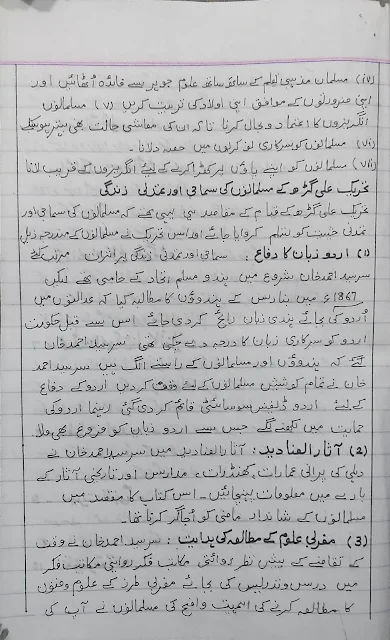 (iv) مسلمان مذہبی تعلیم کے ساتھ ساتھ علوم جدید سے فائدہ اُٹھائیں اور
اپنی ضرورتوں کے موافق اپنی اولاد کی تربیت کریں (v) مسلمانوں
انگریزوں کا اعتماد بحال کرنا تاکہ ان کی معاشی حالت بھی بہتر ہوسکے
(vi) مسلمانوں کو سرکاری نوکریوں میں حصہ دلانا۔
(vii) مسلمانوں کو اپنے پاؤں پر کھڑا کرنے کے لیئے انگریزوں کے قریب لانا
تحریک علی گڑھ کے مسلمانوں کی سماجی اور تمدنی زندگی
تحریک علی گڑھ کے قیام کے مقاصد ہی یہی تھے کہ مسلمانوں کی سماجی اور
تمدنی حیثیت کو تسلیم کروایا جائے اور اس تحریک نے مسلمانوں کے مندرجہ ذیل
(1) اردو زبان کا دفاع: سماجی اور تمدنی زندگی پر اثرات مرتب کیئے
سرسید احمد خان شروع میں ہندو مسلم اتحاد کے حامی تھے لیکن
1867ء میں بنارس کے ہندوؤں کا مطالبہ کیا کہ عدالتوں میں
اُردو کی بجائے ہندی زبان رائج کردی جائے اس سے قبل حکومت
اردو کو سرکاری زبان کا درجہ دے چکی تھی سرسید احمد خان
گئے کہ ہندوؤں اور مسلمانوں کے راستے الگ ہیں سرسید احمد
خان نے تمام کوششیں مسلمانوں کے لئے وقف کردیں اردو کے دفاع
کے لئے اردو ڈیفنس سوسائٹی قائم کردی گئی اردو کی
حمایت میں لکھنے لگے جس سے اردو زبان کو فروغ بھی ملا
(2) آثار الصنادید: آثار الصنادید میں سرسید احمد خان نے
دہلی کی پرانی عمارات، کھنڈرات، مدارس اور تاریخی آثار کے
بارے میں معلومات پہنچائیں۔ اس کتاب کا مقصد میں
مسلمانوں کے شاندار ماضی کو اُجاگر کرنا تھا۔
(3) مغربی علوم کے مطالعہ کی ہدایت: سرسید احمد خان نے وقت
کے تقاضے کے پیش نظر روائتی مکاتب فکر روایتی مکاتب فکر
میں درس و تدریس کی بجائے مغربی طرز کے علوم و فنون
کا مطالعہ کرنے کی اہمیت واضح کی مسلمانوں نے آپ کی